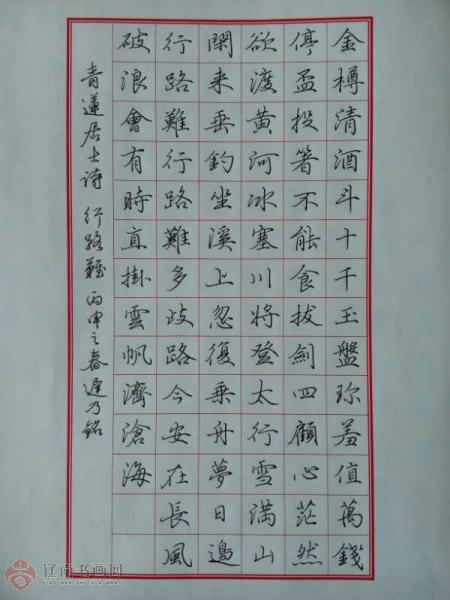 金樽清酒斗十千玉盤珍羞值萬錢
停盃投箸不能食拔劍四顧心茫然
欲渡黄河冰塞川將登太行雪滿山
閑来垂釣坐溪上忽復乗舟夢日邊
行路難行路難多歧路今安在長風
破浪會有時直掛雲帆濟滄海
青蓮居士诗 行路難 丙申之春遲乃銘
辽南书画网